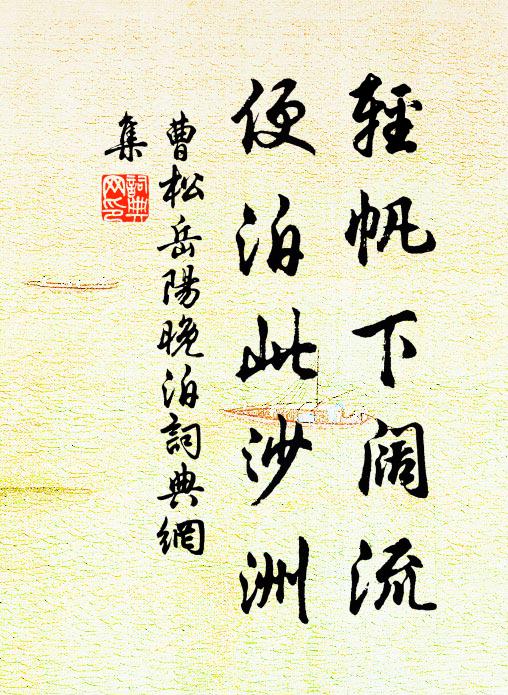 輕帆下阔流
便泊此沙洲
曹松岳陽晚泊詞典網
集
詞典
网印